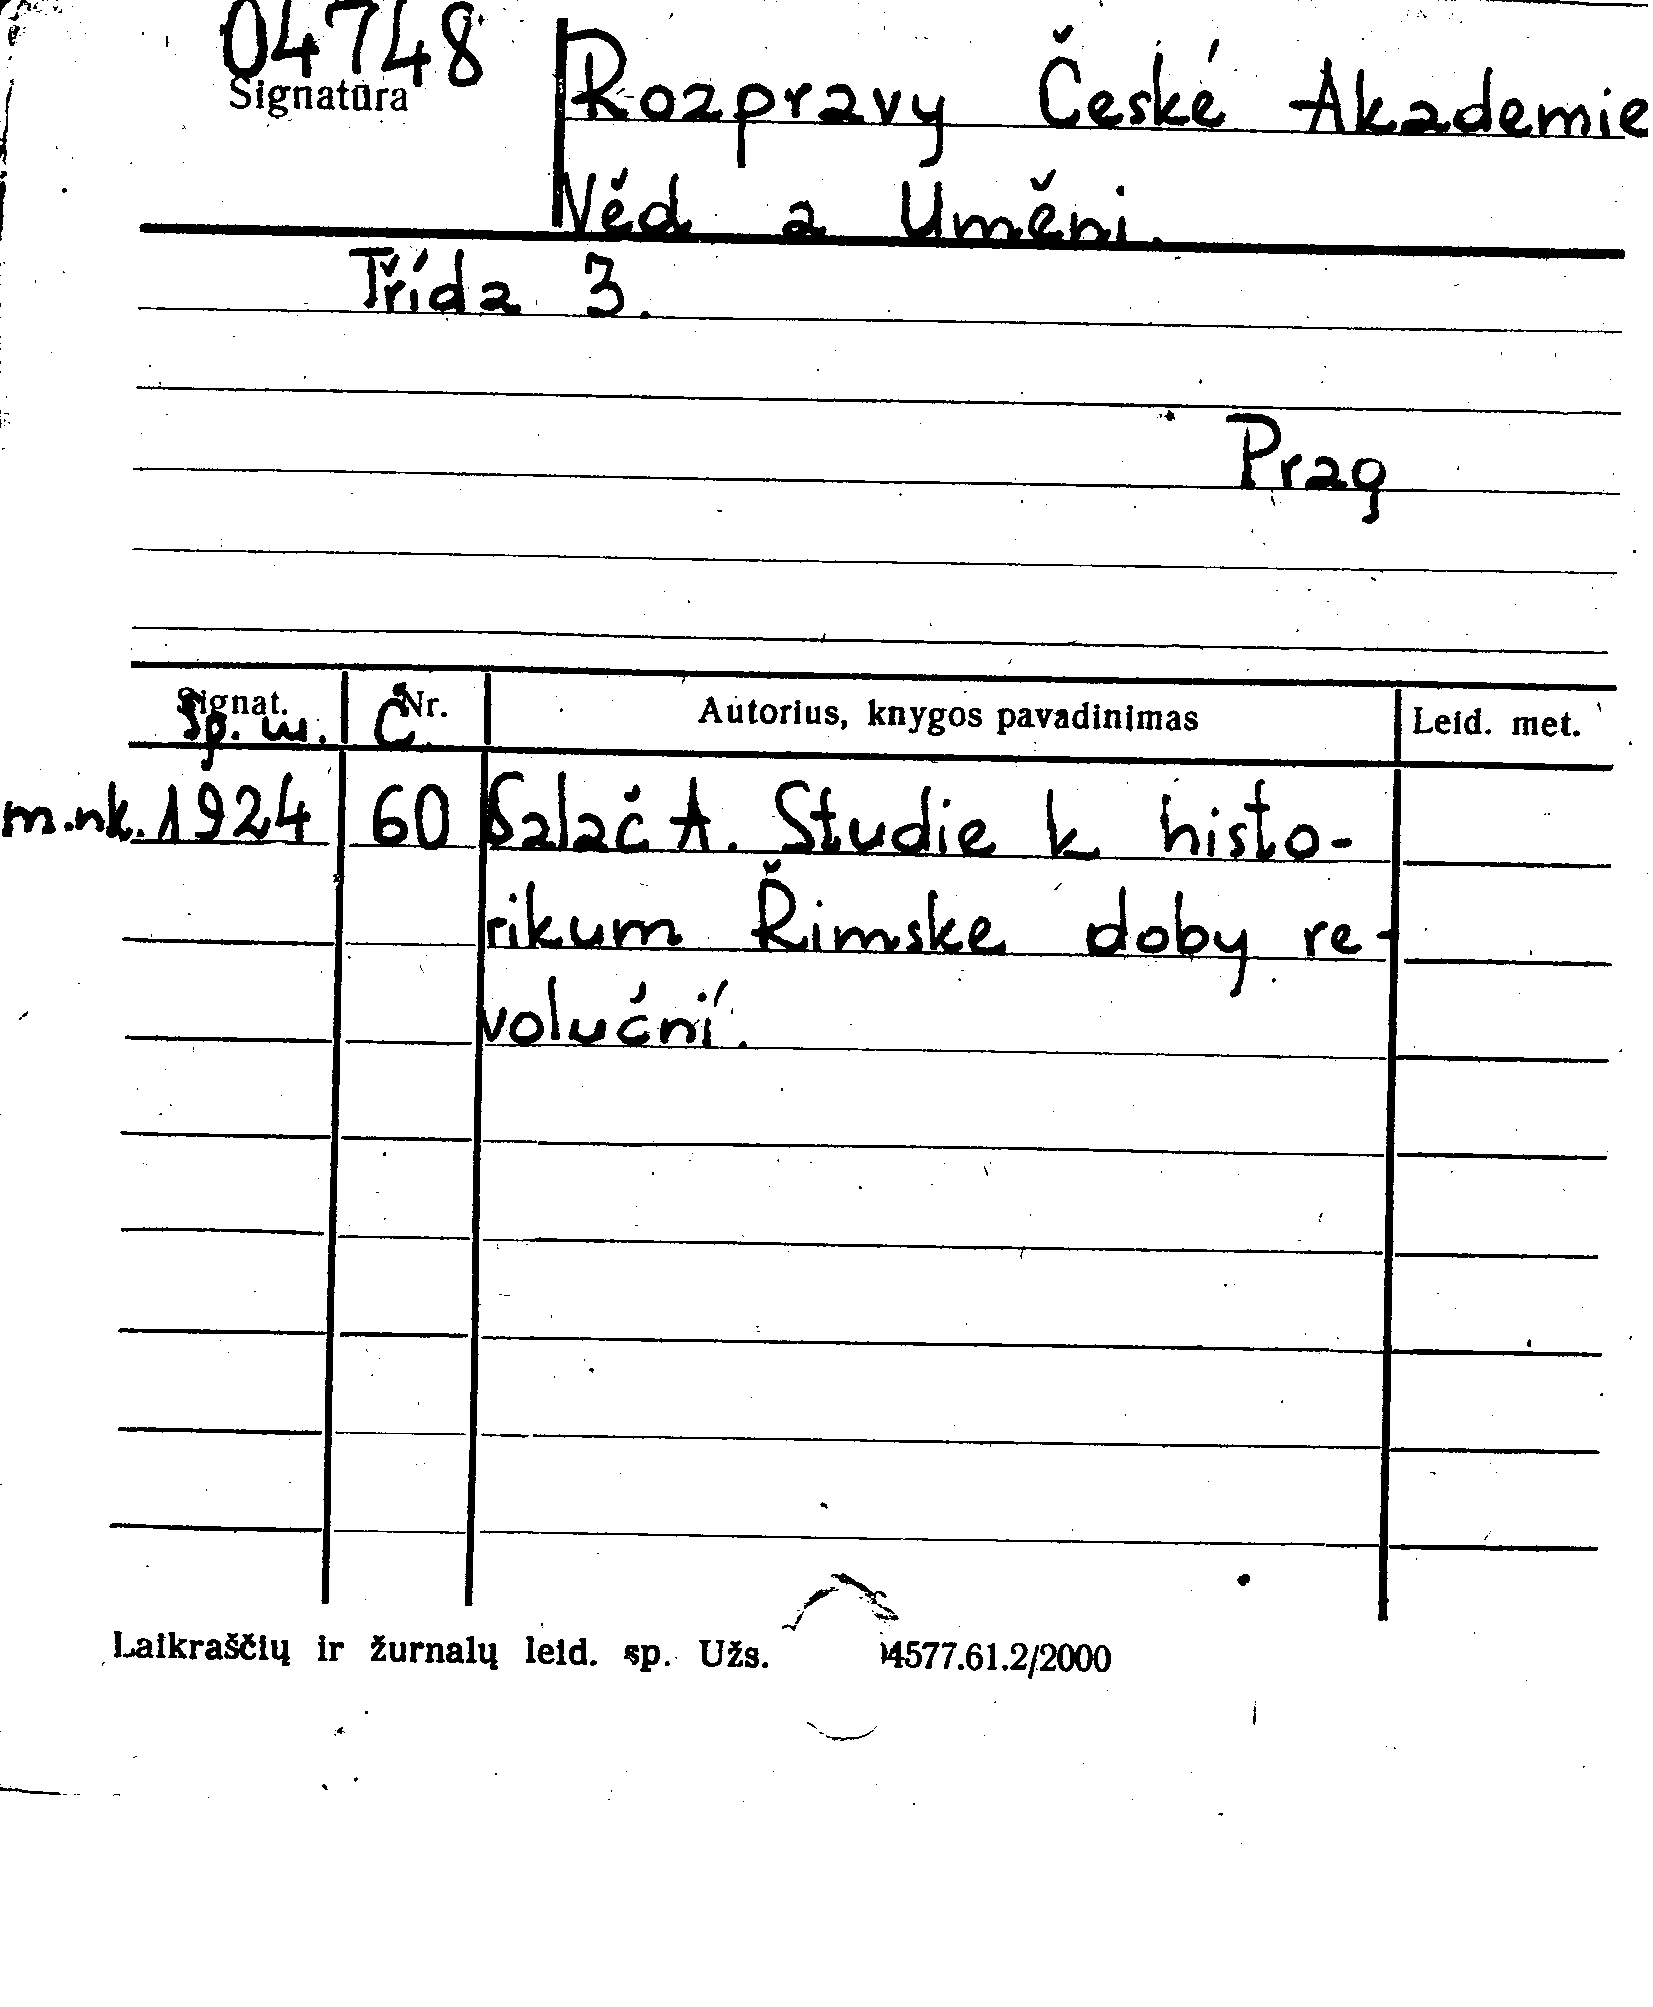 04748
Signatūra
Rozpravy České Akademie
Věd a Uměni.
Třída 3.
Prag
Signat. Nr. Autorius, knygos pavadinimas Leid. met.
Sp. m. Č.
m.nk. 1924 60 Salač A. Studie k histo-
rikum Řimske doby re-
voluční.
Laikraščių ir žurnalų leid. sp. Užs. 14577.61.2/2000